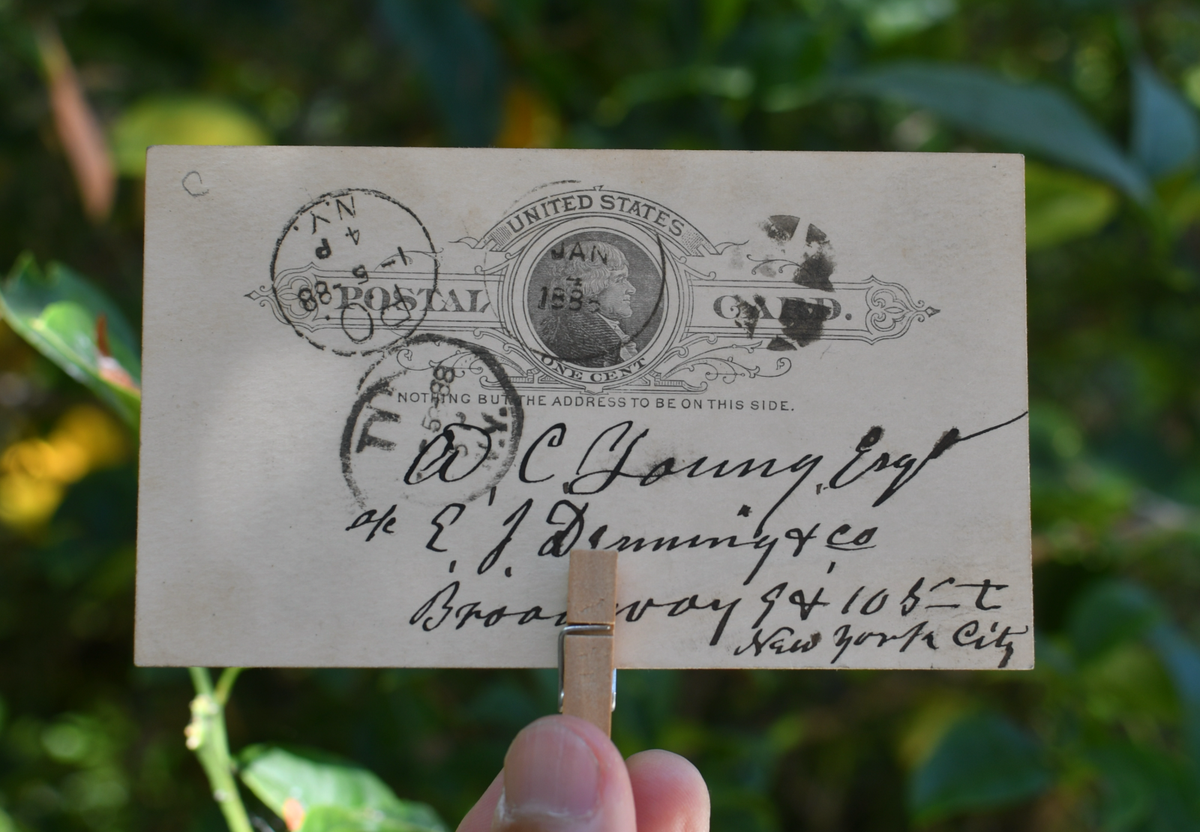 C
UNITED STATES
N.Y.
4
P
1-5
88
JAN
4
POSTAL CARD.
ONE CENT
NOTHING BUT THE ADDRESS TO BE ON THIS SIDE.
5-88
N.Y.
W. C. Young, Esqr
E. J. Denning & Co
Broadway 9 & 10 St
New York City